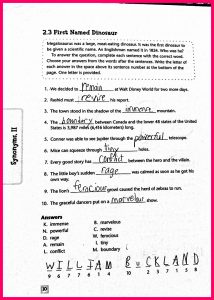 2.3 First Named Dinosaur
Megalosaurus was a large, meat-eating dinosaur. It was the first dinosaur to be
given a scientific name. An Englishman named it in 1824. Who was he?
To answer the question, complete each sentence with the correct word.
Choose your answers from the words after the sentence. Write the letter of
each answer in the space above its sentence number at the bottom of the
page. One letter is provided.
1. We decided to remain at Walt Disney World for two more days.
2. Rashid must revive his report.
3. The town stood in the shadow of the immense mountain.
4. The boundary between Canada and the lower 48 states of the United
States is 3,987 miles (6,416 kilometers) long.
5. Conner was able to see Jupiter through the powerful telescope.
6. Mice can squeeze through tiny holes.
7. Every good story has conflict between the hero and the villain.
8. The little boy's sudden rage was calmed as soon as he got his
own way.
9. The lion's ferocious growl caused the herd of zebras to run.
10. The grateful dancers put on a marvelous show.
Answers
K. immense
N. powerful
D. rage
A. remain
C. conflict
B. marvelous
U. revise
W. ferocious
I. tiny
M. boundary
L
WILLIAM BUCKLAND
9 6 4 10 2 7 3 5 8
30
Synonyms, II